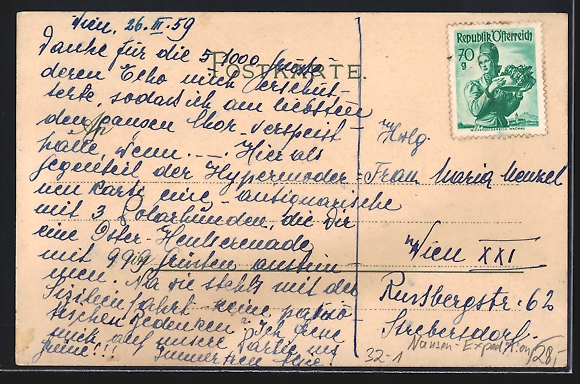 Wien, 26. III. 59
Danke für die 5 1000 Grüße
deren Echo mich erschüt-
terte, sodass ich am liebsten
den ganzen Chor verspeist
hätte, wenn ... . Hier als
Gegenteil der Hypermoder-
nen Karte eine antiquarische
mit 3 Polarhunden, die Dir
eine Oster-Heulserenade
mit 999 Grüssen anstim-
men. Na wie steht's mit der
Sizilienfahrt - keine
Bedenken? Ich
mich auf unsere Partie ins
Grüne!!! Immer
POSTKARTE.
An
Republik Österreich
70
g
Wohlg.
Frau Maria Menzel
Wien XXI
Russbergstr. 62
Strebersdorf.
32-1
Nansen-Expedition
28,-